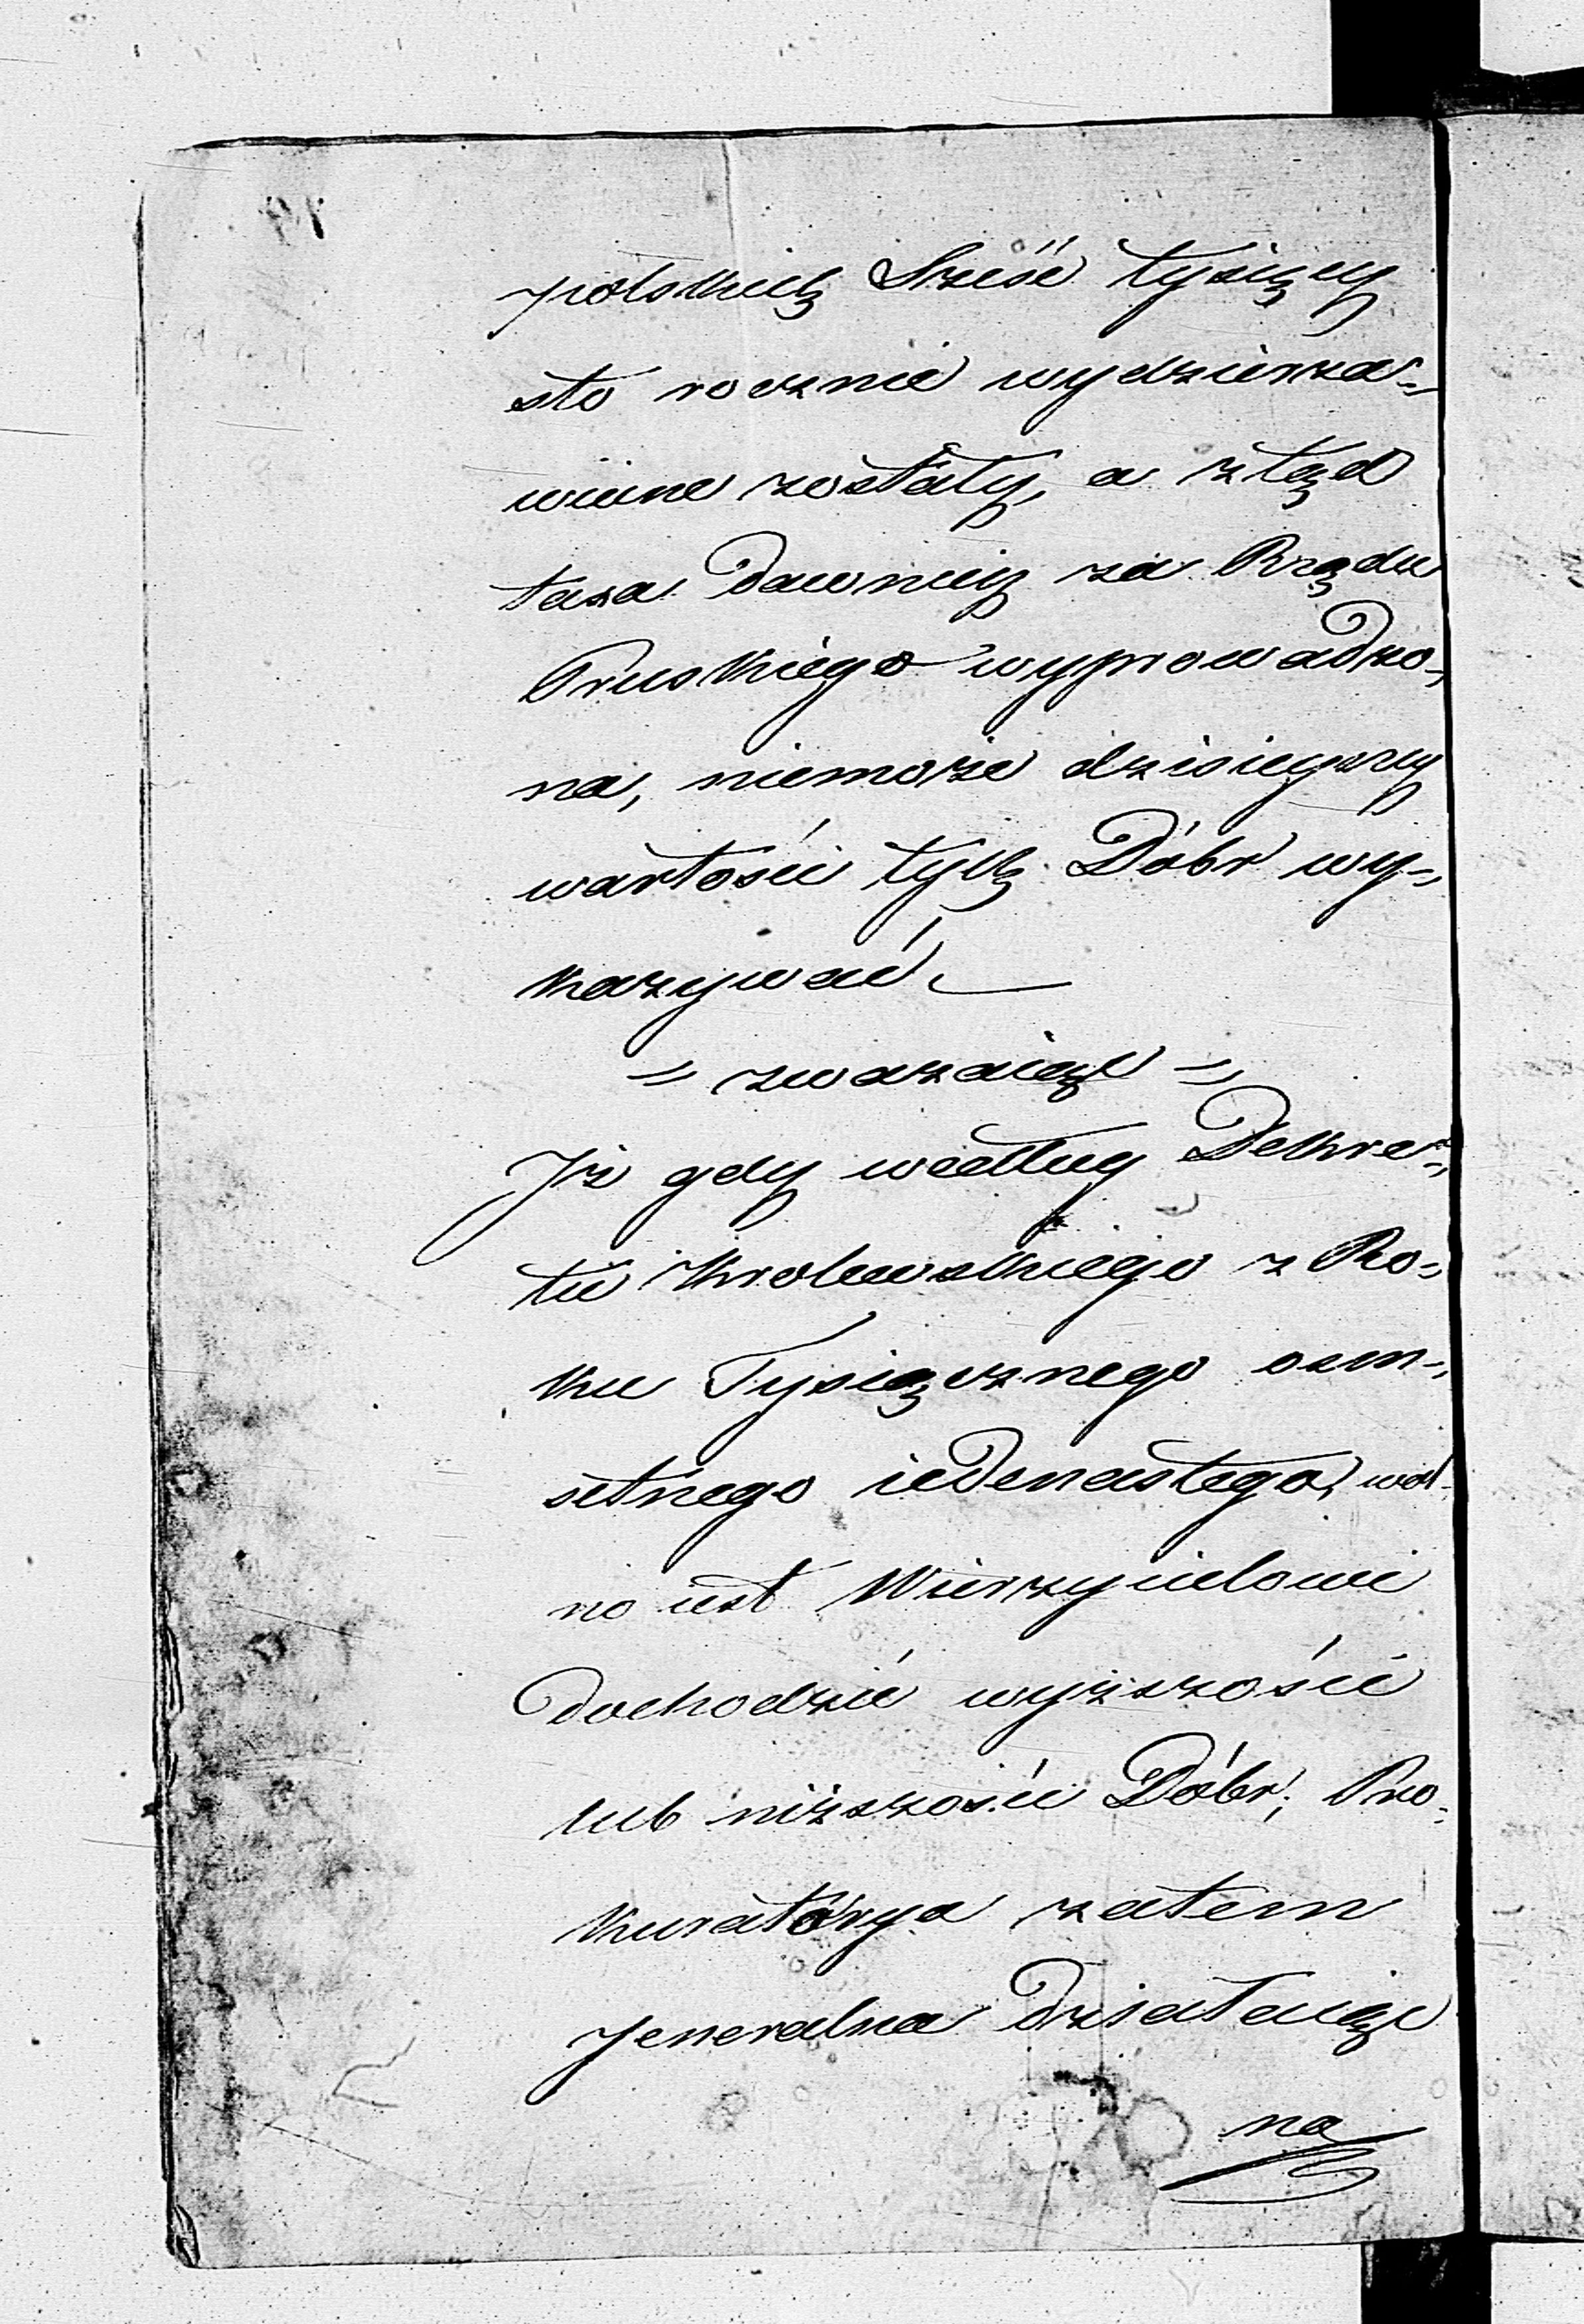 polskich Sześć tysięcy
sto rocznie wydzierża=
wione zostały, a ztąd
taxa dawniey za Rządu
Pruskiego wyprowadzo=
na, niemoże dzisieyszey
wartości tych Dóbr wy=
kazywać.
= zważaiąc =
Iż gdy według Dekre=
tu Krolewskiego z Ro=
ku Tysiącznego osm=
setnego iedenastego, wol=
no iest Wierzycielowi
dochodzić wyższości
lub niższości Dóbr; Pro=
kuratorya zatem
Jeneralna działaiąc
na